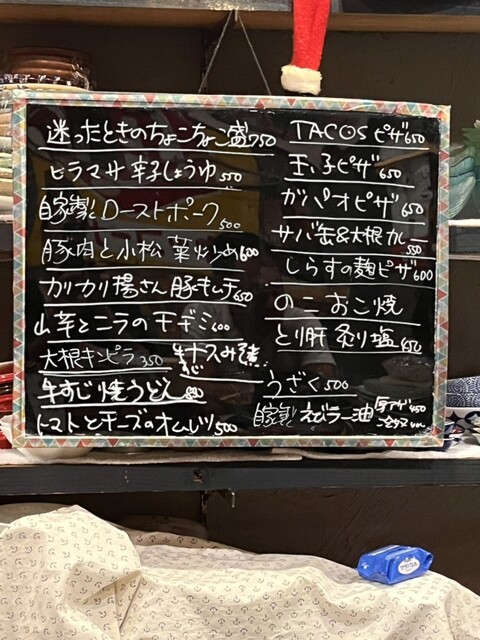 迷ったときのちょこちょこ盛750
ヒラマサ辛子しょうゆ550
自家製ローストポーク500
豚肉と小松菜炒め600
カリカリ揚さん豚キムチ650
山芋とニラのチヂミ600
大根キンピラ350
牛すじ焼うどん
トマトとチーズのオムレツ500
TACOSピザ650
玉子ピザ650
ガパオピザ650
サバ缶&大根カレー550
しらすの麹ピザ600
のこおこ焼
とり肝炙り塩450
うざく500
自家製えびラー油